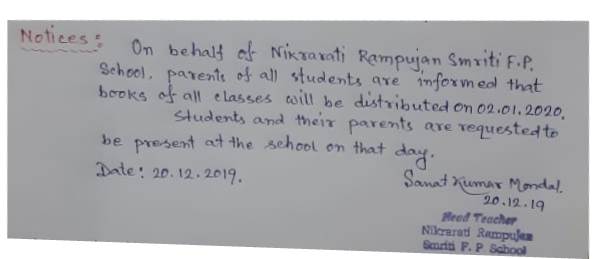 Notices :
On behalf of Nikrarati Rampujan Smriti F.P.
School, parents of all students are informed that
books of all classes will be distributed on 02.01.2020.
Students and their parents are requested to
be present at the school on that day.
Date: 20.12.2019.
Sanat Kumar Mondal.
20.12.19
Head Teacher
Nikrarati Rampujan
Smriti F. P School